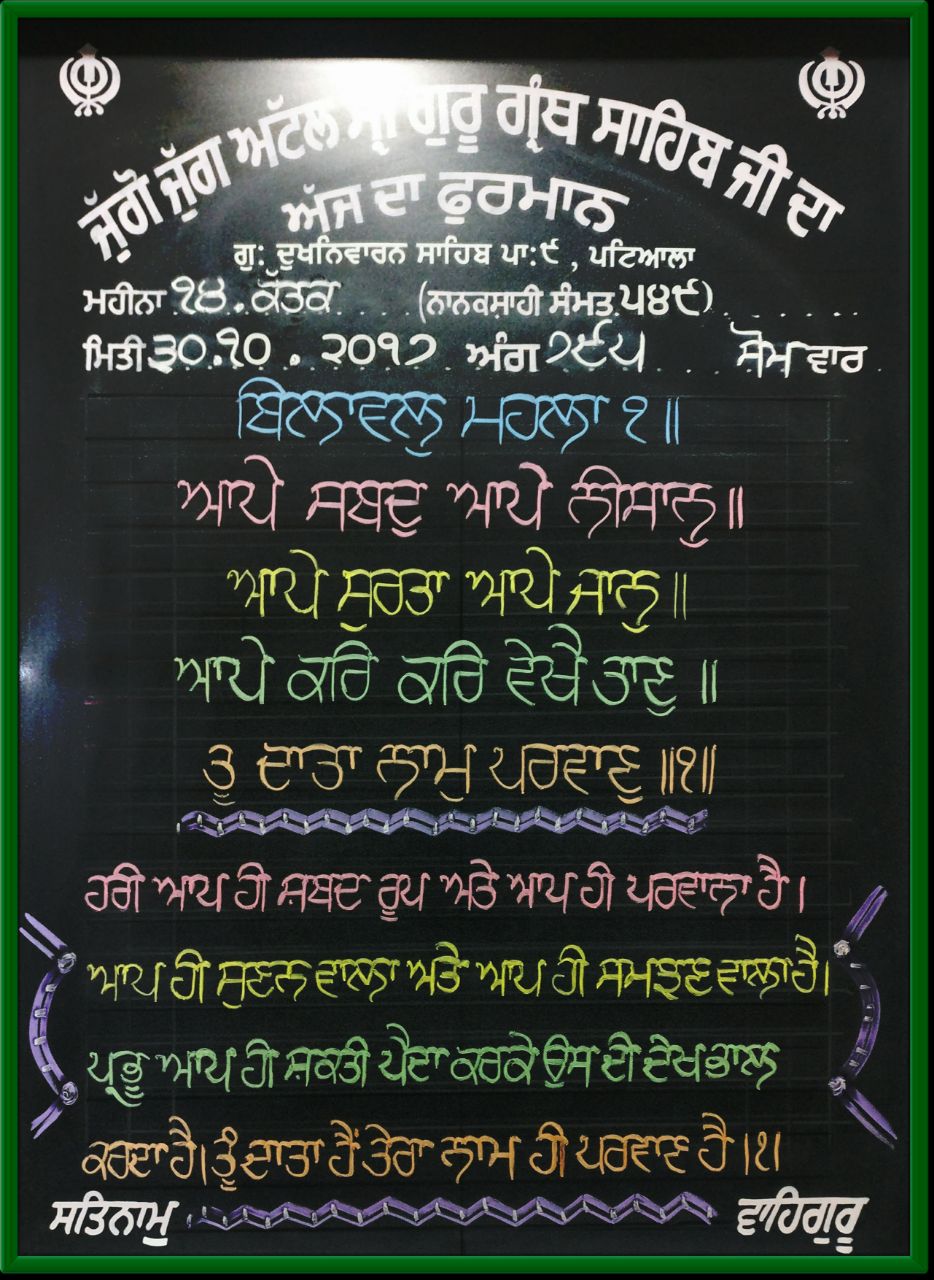 ਜੁੱਗੋ ਜੁੱਗ ਅਟੱਲ ਸ੍ਰੀ ਗੁਰੂ ਗ੍ਰੰਥ ਸਾਹਿਬ ਜੀ ਦਾ
ਅੱਜ ਦਾ ਫੁਰਮਾਨ
ਗੁ: ਦੁਖਨਿਵਾਰਨ ਸਾਹਿਬ ਪਾ:੯ , ਪਟਿਆਲਾ
ਮਹੀਨਾ ੧੪. ਕੱਤਕ (ਨਾਨਕਸ਼ਾਹੀ ਸੰਮਤ ੫੪੯)
ਮਿਤੀ ੩੦.੧੦ . ੨੦੧੭ ਅੰਗ ੭੯੫ ਸੋਮ ਵਾਰ
ਬਿਲਾਵਲੁ ਮਹਲਾ ੧॥
ਆਪੇ ਸਬਦੁ ਆਪੇ ਨੀਸਾਨੁ॥
ਆਪੇ ਸੁਰਤਾ ਆਪੇ ਜਾਨੁ॥
ਆਪੇ ਕਰਿ ਕਰਿ ਵੇਖੈ ਤਾਣੁ ॥
ਤੂ ਦਾਤਾ ਨਾਮੁ ਪਰਵਾਣੁ ॥੧॥
ਹਰੀ ਆਪ ਹੀ ਸ਼ਬਦ ਰੂਪ ਅਤੇ ਆਪ ਹੀ ਪਰਵਾਨਾ ਹੈ।
ਆਪ ਹੀ ਸੁਣਨ ਵਾਲਾ ਅਤੇ ਆਪ ਹੀ ਸਮਝਣ ਵਾਲਾ ਹੈ।
ਪ੍ਰਭੂ ਆਪ ਹੀ ਸ਼ਕਤੀ ਪੈਦਾ ਕਰਕੇ ਉਸ ਦੀ ਦੇਖਭਾਲ
ਕਰਦਾ ਹੈ। ਤੂੰ ਦਾਤਾ ਹੈਂ ਤੇਰਾ ਨਾਮ ਹੀ ਪਰਵਾਣ ਹੈ।੧।
ਸਤਿਨਾਮੁ ਵਾਹਿਗੁਰੂ